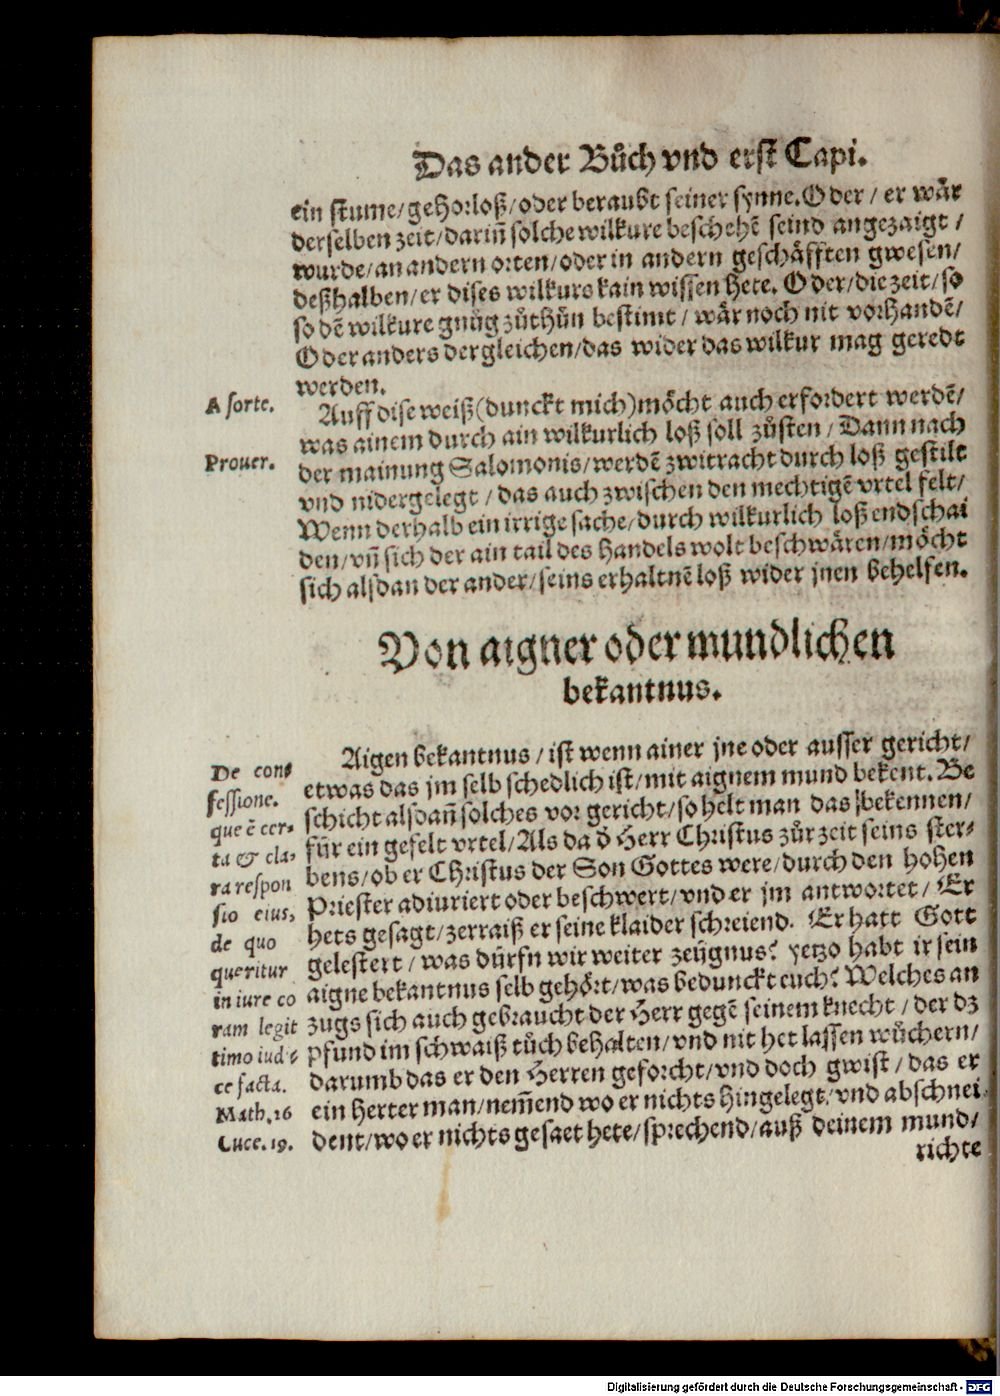 Das ander Bůch vnd erst Capi.
ein stume/gehorloß/oder beraubt seiner synne. Oder/ er wår
derselben zeit/darin̄ solche wilkure beschehē seind angezaigt/
wurde/an andern orten/oder in andern geschåfften gwesen/
deßhalben/er dises wilkurs kain wissen hete. Oder/die zeit/so
so dē wilkure gnůg zůthůn bestimt/ wår noch nit vorhandē/
Oder anders dergleichen/das wider das wilkur mag geredt
werden.
A sorte.
Auff dise weiß (dunckt mich) möcht auch erfordert werdē/
was ainem durch ain wilkurlich loß soll zůsten/ Dann nach
Prouer.
der mainung Salomonis/werdē zwitracht durch loß gestilt
vnd nidergelegt/ das auch zwischen den mechtigē vrtel felt/
Wenn derhalb ein irrige sache/durch wilkurlich loß endschai
den/vn̄ sich der ain tail des handels wolt beschwåren/möcht
sich alsdan der ander/seins erhaltnē loß wider jnen behelfen.
Von aigner oder mundlichen
bekantnus.
Aigen bekantnus/ ist wenn ainer jne oder ausser gericht/
etwas das jm selb schedlich ist/mit aignem mund bekent. Be
schicht alsdan̄ solches vor gericht/so helt man das bekennen/
für ein gefelt vrtel/Als da d' Herr Christus zůr zeit seins ster⸗
bens/ob er Christus der Son Gottes were/durch den hohen
Priester adiuriert oder beschwert/vnd er jm antwortet/ Er
hets gesagt/zerraiß er seine klaider schreiend. Er hatt Gott
gelestert/ was dürfn wir weiter zeügnus? yetzo habt ir sein
aigne bekantnus selb gehört/was bedunckt euch? Welches an
zugs sich auch gebraucht der Herr gegē seinem knecht/ der dz
pfund im schwaiß tůch behalten/vnd nit het lassen wůchern/
darumb das er den Herren geforcht/vnd doch gwist/ das er
ein herter man/nem̄end wo er nichts hingelegt/vnd abschnei
dent/wo er nichts gesaet hete/sprechend/auß deinem mund/
richte
De con⸗
fessione.
que ē cer⸗
ta & cla⸗
ra respon
sio eius,
de quo
queritur
in iure co
ram legit
timo iudi⸗
ce facta.
Math. 26
Luce. 19.
Digitalisierung gefördert durch die Deutsche Forschungsgemeinschaft - DFG